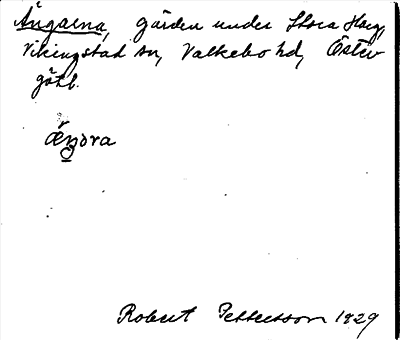 Ängarna, gården under Stora Harg,
Vikingstad sn, Valkebo hd, Öster
götl.
Robert Pettersson 1929